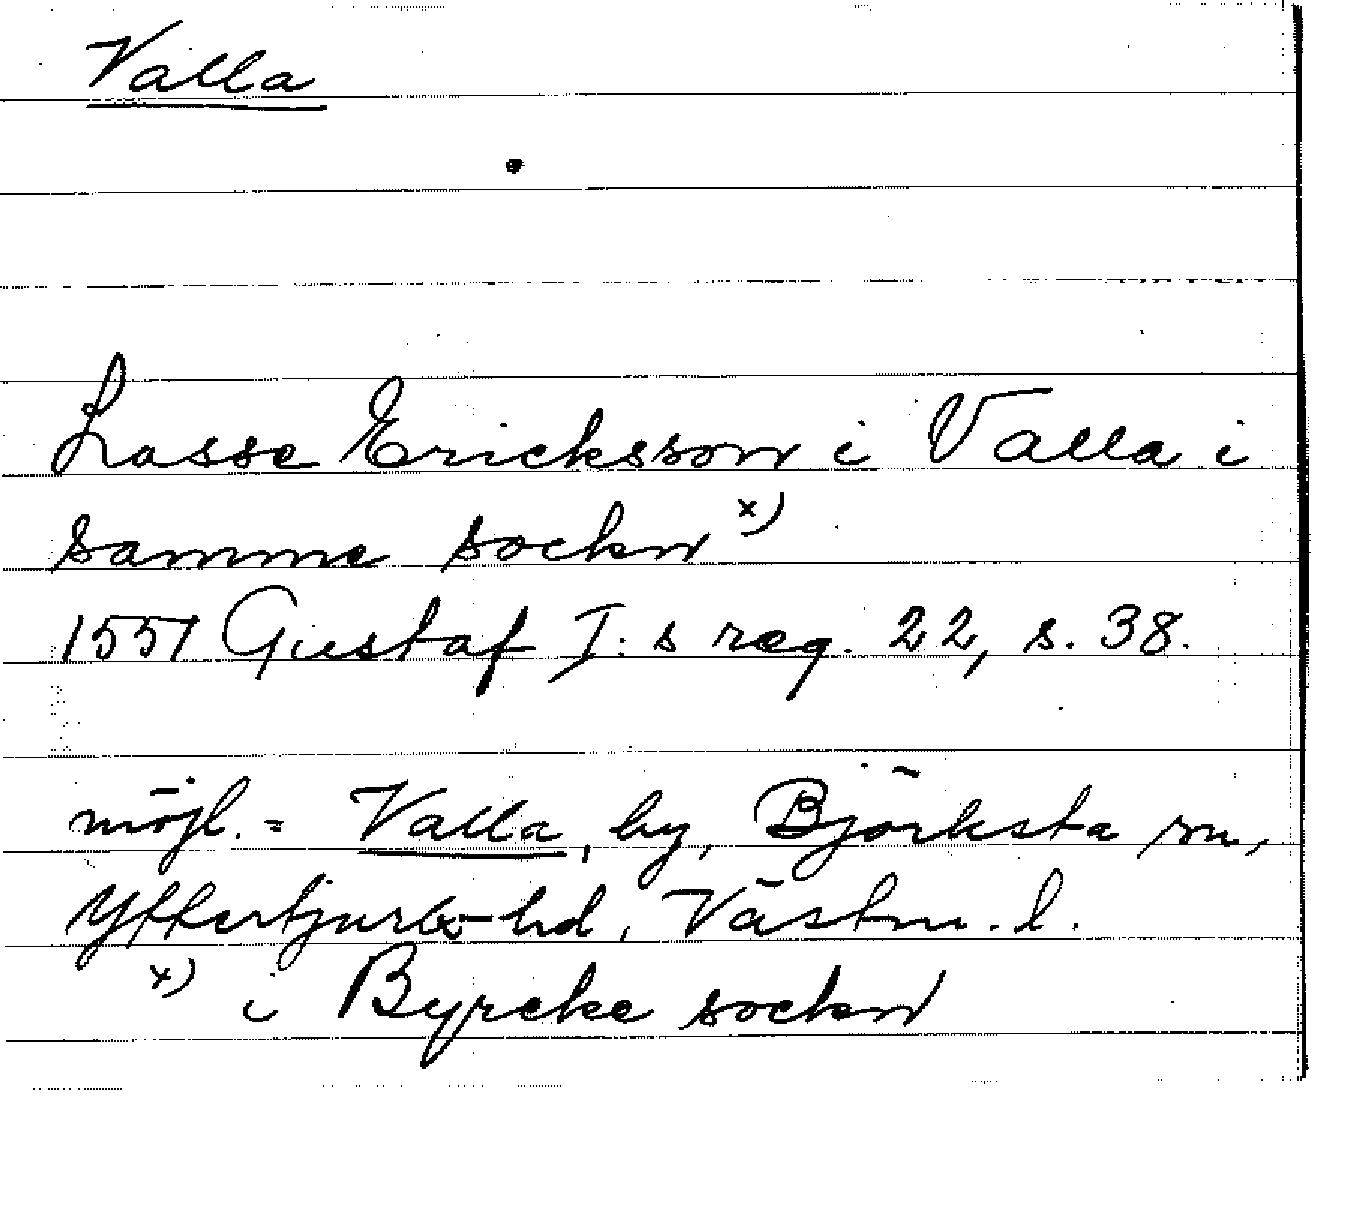 Valla
Lasse Ericksson i Valla i
samme sockn x)
1551 Gustaf I:s reg. 22, s. 38.
möjl. = Valla, by, Björksta sn,
Yttertjurbo hd, Västm. l.
x) i Byrcke sockn